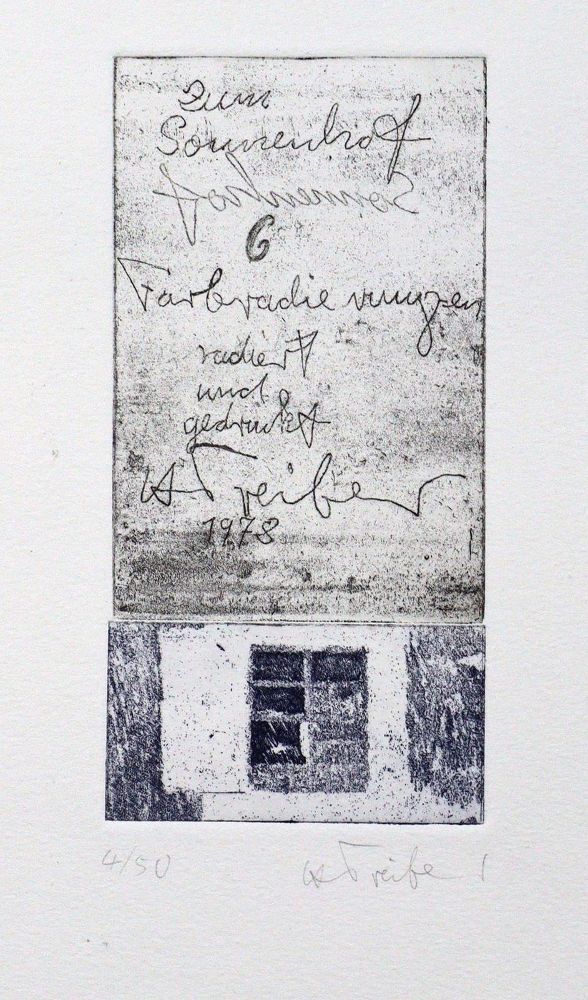 Zum
Sonnenhof
Sonnenhof
6
Farbradierungen
radiert
und
gedruckt
Treiber
1978
4/50
Treiber